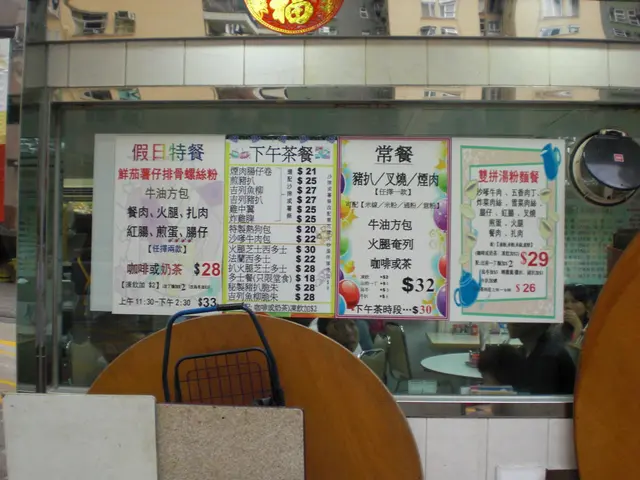 福
假日特餐
鮮茄薯仔排骨螺絲粉
牛油方包
餐肉、火腿、扎肉
紅腸、煎蛋、腸仔
【任擇兩款】
咖啡或奶茶 $28
上午11:30-下午2:30 $33
下午茶餐
煙肉腸仔卷 $21
煎豬扒 $25
吉列魚柳 $27
吉列豬扒 $27
雞中翼 $25
炸雞髀 $25
特製熱狗包 $20
沙嗲牛肉包 $22
火腿芝士西多士 $30
法蘭西多士 $22
扒火腿芝士多士 $28
多士餐(只限堂食) $18
秘製豬扒脆包 $28
吉列魚柳脆包 $28
咖啡或奶茶
常餐
豬扒／叉燒／煙肉
【任擇一款】
牛油方包
火腿奄列
咖啡或茶
$32
下午茶時段…$30
雙拼湯粉麵餐
沙嗲牛肉、五香肉丁
炸菜肉絲、雪菜肉絲
腸仔、紅腸、叉燒
煎蛋、火腿
餐肉、扎肉
$29
$26